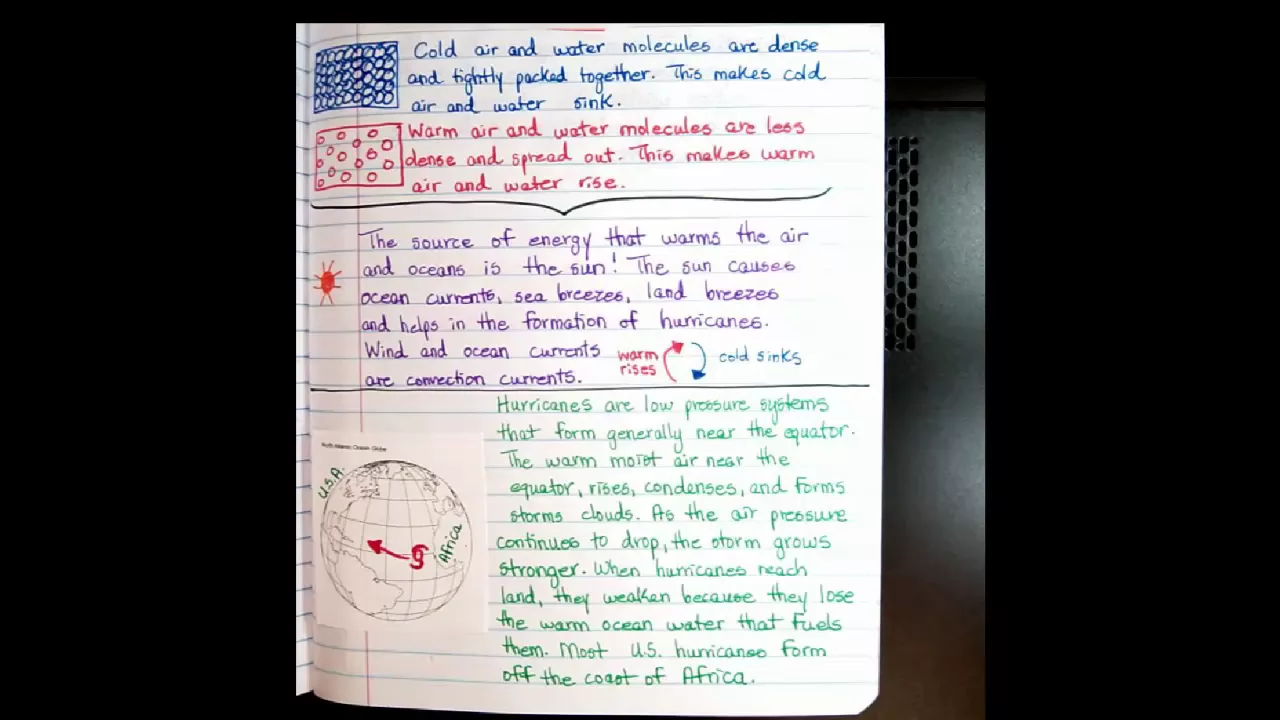 Cold air and water molecules are dense
and tightly packed together. This makes cold
air and water sink.
Warm air and water molecules are less
dense and spread out. This makes warm
air and water rise.
The source of energy that warms the air
and oceans is the sun! The sun causes
ocean currents, sea breezes, land breezes
and helps in the formation of hurricanes.
Wind and ocean currents
are convection currents.
warm
rises
cold sinks
Hurricanes are low pressure systems
that form generally near the equator.
The warm moist air near the
equator, rises, condenses, and forms
storms clouds. As the air pressure
continues to drop, the storm grows
stronger. When hurricanes reach
land, they weaken because they lose
the warm ocean water that fuels
them. Most U.S. hurricanes form
off the coast of Africa.
North Atlantic Ocean Globe
U.S.A.
Africa